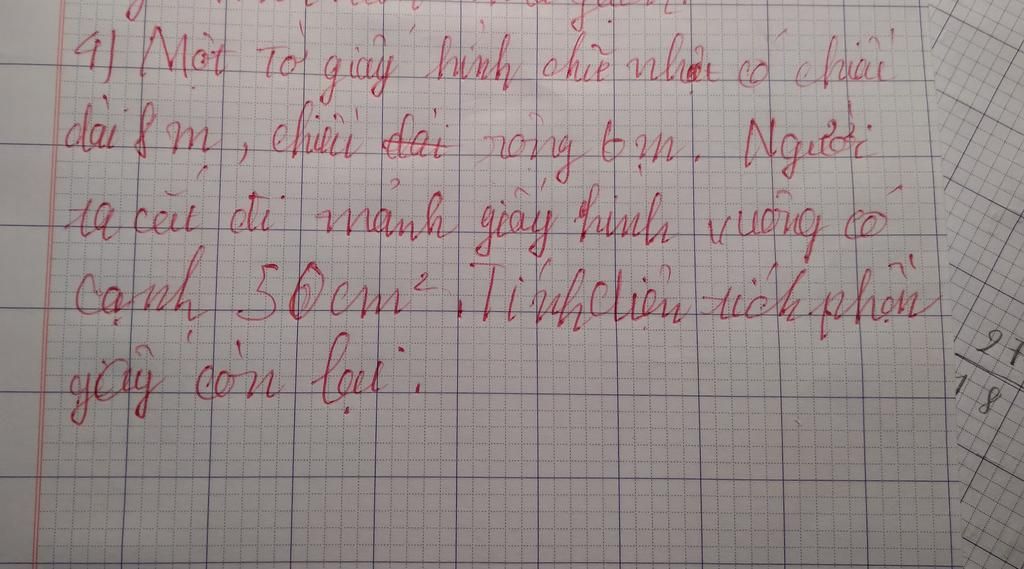 4) Một tờ giấy hình chữ nhật có chiều
dài 8 m, chiều dài rộng 6 m. Người
ta cắt đi mảnh giấy hình vuông có
cạnh 50cm². Tính diện tích phần
giấy còn lại.
97
18